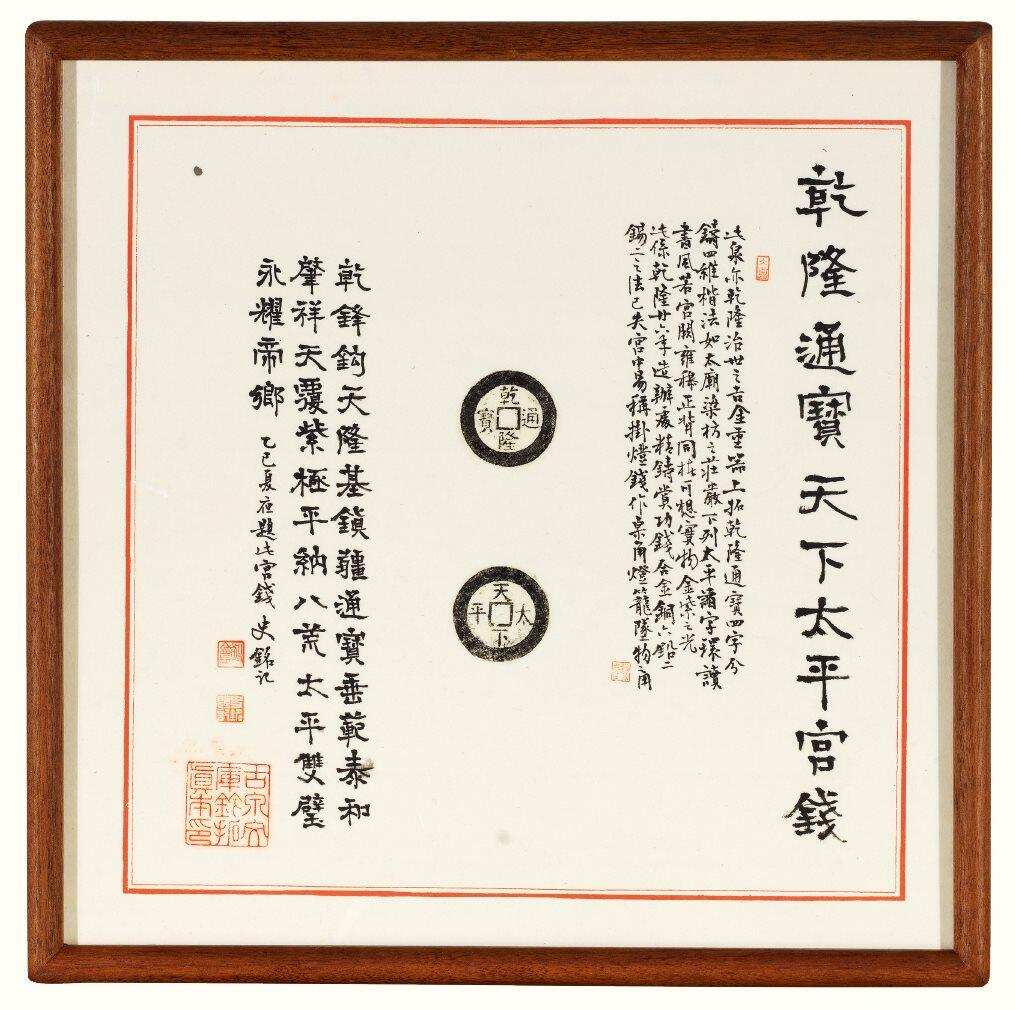 乾隆通寶天下太平宮錢
此泉亦乾隆治世之吉金重器上拓乾隆通寶四字分
鑄四維楷法如太廟梁枋之莊嚴下列太平諸字環讀
書風若宮闕雍穆正背同樁可想實物金紫之光
此係乾隆廿六年造辦處精鑄賞功錢合金銅六鉛二
錫二之法已失宮中易稱掛燈錢作桌角燈籠墜物角
乾隆通寶
天下太平
乾鋒鈎天隆基鎮疆通寶垂範泰和
肇祥天覆紫極平納八荒太平雙璧
永耀帝鄉
乙巳夏夜題此宮錢 史銘記
古泉文
庫鈐拓
真本印